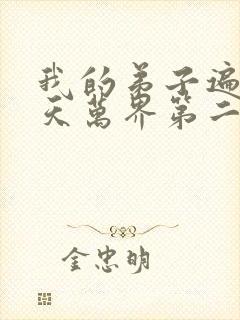 我的弟子遍
天萬界第二
金忠明